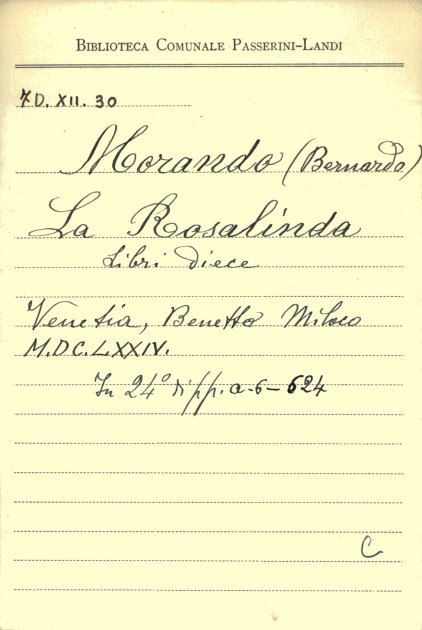 BIBLIOTECA COMUNALE PASSERINI-LANDI
7D. XII. 30
Morando (Bernardo)
La Rosalinda
Libri Diece
Venetia, Benetto Miloco
M.DC.LXXIV.
In 24° di pp. a-6-624
C